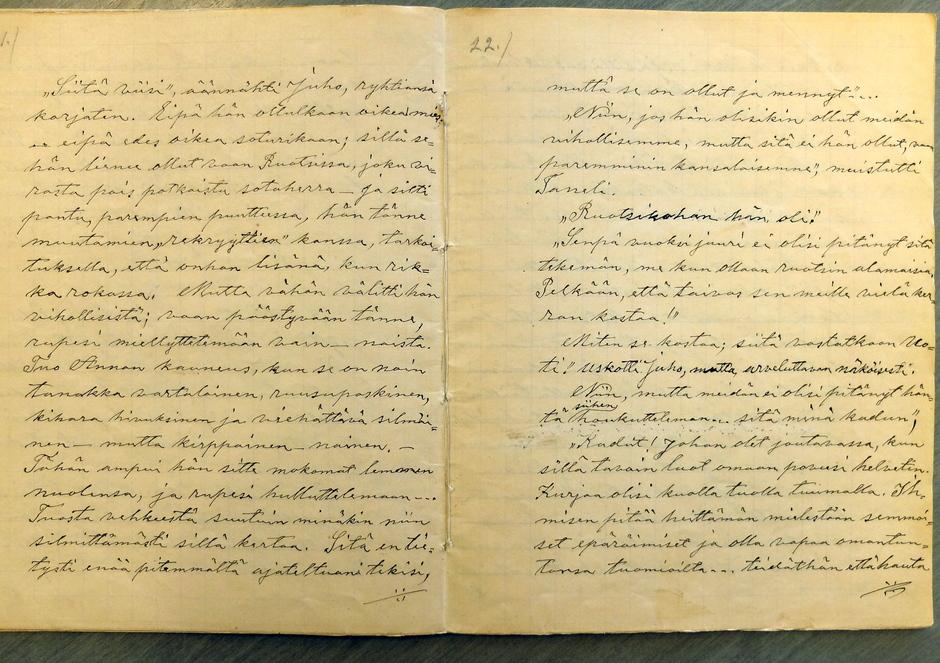 1./
„Siitä viisi", äännähti Juho, ryhtiänsä
korjaten. Eipä hän ollutkaan oikea mies,
eipä edes oikea soturikaan; sillä se-
hän lienee ollut vaan Ruotsissa, joku vi-
rasta pois potkaistu sotaherra — ja sitti
pantu, parempien puuttussa, hän tänne
muutamien „rekryyttien" kanssa, tarkoi-
tuksella, että onhan lisänä, kun rik-
ka rokassa. Mutta vähän välitti hän
vihollisistä; vaan päästyvään tänne,
rupesi miellyttelemään vain — naista.
Tuo Annan kauneus, kun se on noin
tanakka vartaloinen, ruusuposkinen,
kihara hivuksinen ja viehättävä silmäi-
nen — mutta kirppainen — nainen. —
Tähän ampui hän sitte mokomat lemmen
nuolensa, ja rupesi hulluttelemaan ---
Tuosta vehkeestä suutuin minäkin niin
silmittämästi sillä kertaa. Sitä en tie-
tysti enää pitemmältä ajateltuani tekisi,
22./
mutta se on ollut ja mennyt"...
„Niin, jos hän olisikin ollut meidän
vihollisemme, mutta sitä ei hän ollut, vaan
paremminin kansalaisemme", muistutti
Taneli.
„Ruotsikohan hän oli!"
„Senpä vuoksi juuri ei olisi pitänyt sitä
tekemän, me kun ollaan ruotsin alamaisia.
Pelkään, että taivas sen meille vielä ker-
ran kostaa!"
Miten se kostaa; siitä vastatkaan Uo-
ti!" uskotti Juho, mutta arveluttavan näköisesti.
Niin, mutta meidän ei olisi pitänyt hän-
tä siihen houkutteleman... sitä minä kadun",
„Kadut! Johan olet joutavassa, kun
sillä tavoin luot omaan poveesi helvetin.
Kurjaa olisi kuolla tuolla tuimalla. Ih-
misen pitää heittämän mielestään semmoi-
set epäröimiset ja olla vapaa omantun-
tonsa tuomioilta... tiedäthän että hauta